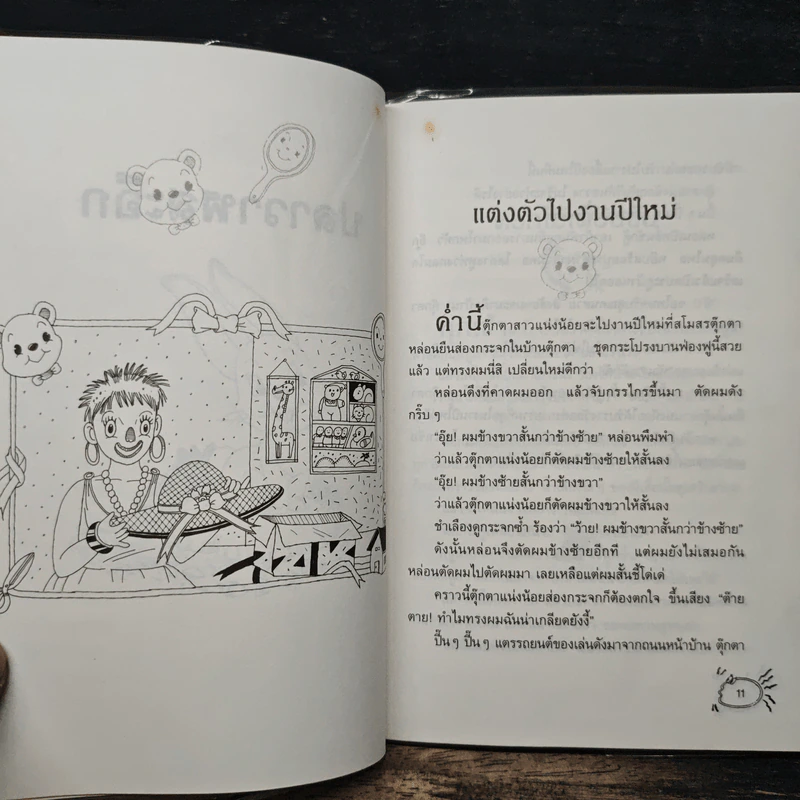 แต่งตัวไปงานปีใหม่
ค่ำนี้ ตุ๊กตาสาวแน่งน้อยจะไปงานปีใหม่ที่สโมสรตุ๊กตา
หล่อนยืนส่องกระจกในบ้านตุ๊กตา ชุดกระโปรงบานฟ่องฟูนี้สวย
แล้ว แต่ทรงผมนี่สิ เปลี่ยนใหม่ดีกว่า
หล่อนดึงที่คาดผมออก แล้วจับกรรไกรขึ้นมา ตัดผมดัง
กริ๊บ ๆ
"อุ๊ย! ผมข้างขวาสั้นกว่าข้างซ้าย" หล่อนพึมพำ
ว่าแล้วตุ๊กตาแน่งน้อยก็ตัดผมข้างซ้ายให้สั้นลง
"อุ๊ย! ผมข้างซ้ายสั้นกว่าข้างขวา"
ว่าแล้วตุ๊กตาแน่งน้อยก็ตัดผมข้างขวาให้สั้นลง
ชำเลืองดูกระจกซ้ำ ร้องว่า "ว้าย! ผมข้างขวาสั้นกว่าข้างซ้าย"
ดังนั้นหล่อนจึงตัดผมข้างซ้ายอีกที แต่ผมยังไม่เสมอกัน
หล่อนตัดผมไปตัดผมมา เลยเหลือแต่ผมสั้นชี้โด่เด่
คราวนี้ตุ๊กตาแน่งน้อยส่องกระจกก็ต้องตกใจ ขึ้นเสียง "ต๊าย
ตาย! ทำไมทรงผมฉันน่าเกลียดยังงี้"
ปี๊น ๆ ปี๊น ๆ แตรรถยนต์ของเล่นดังมาจากถนนหน้าบ้าน ตุ๊กตา
11